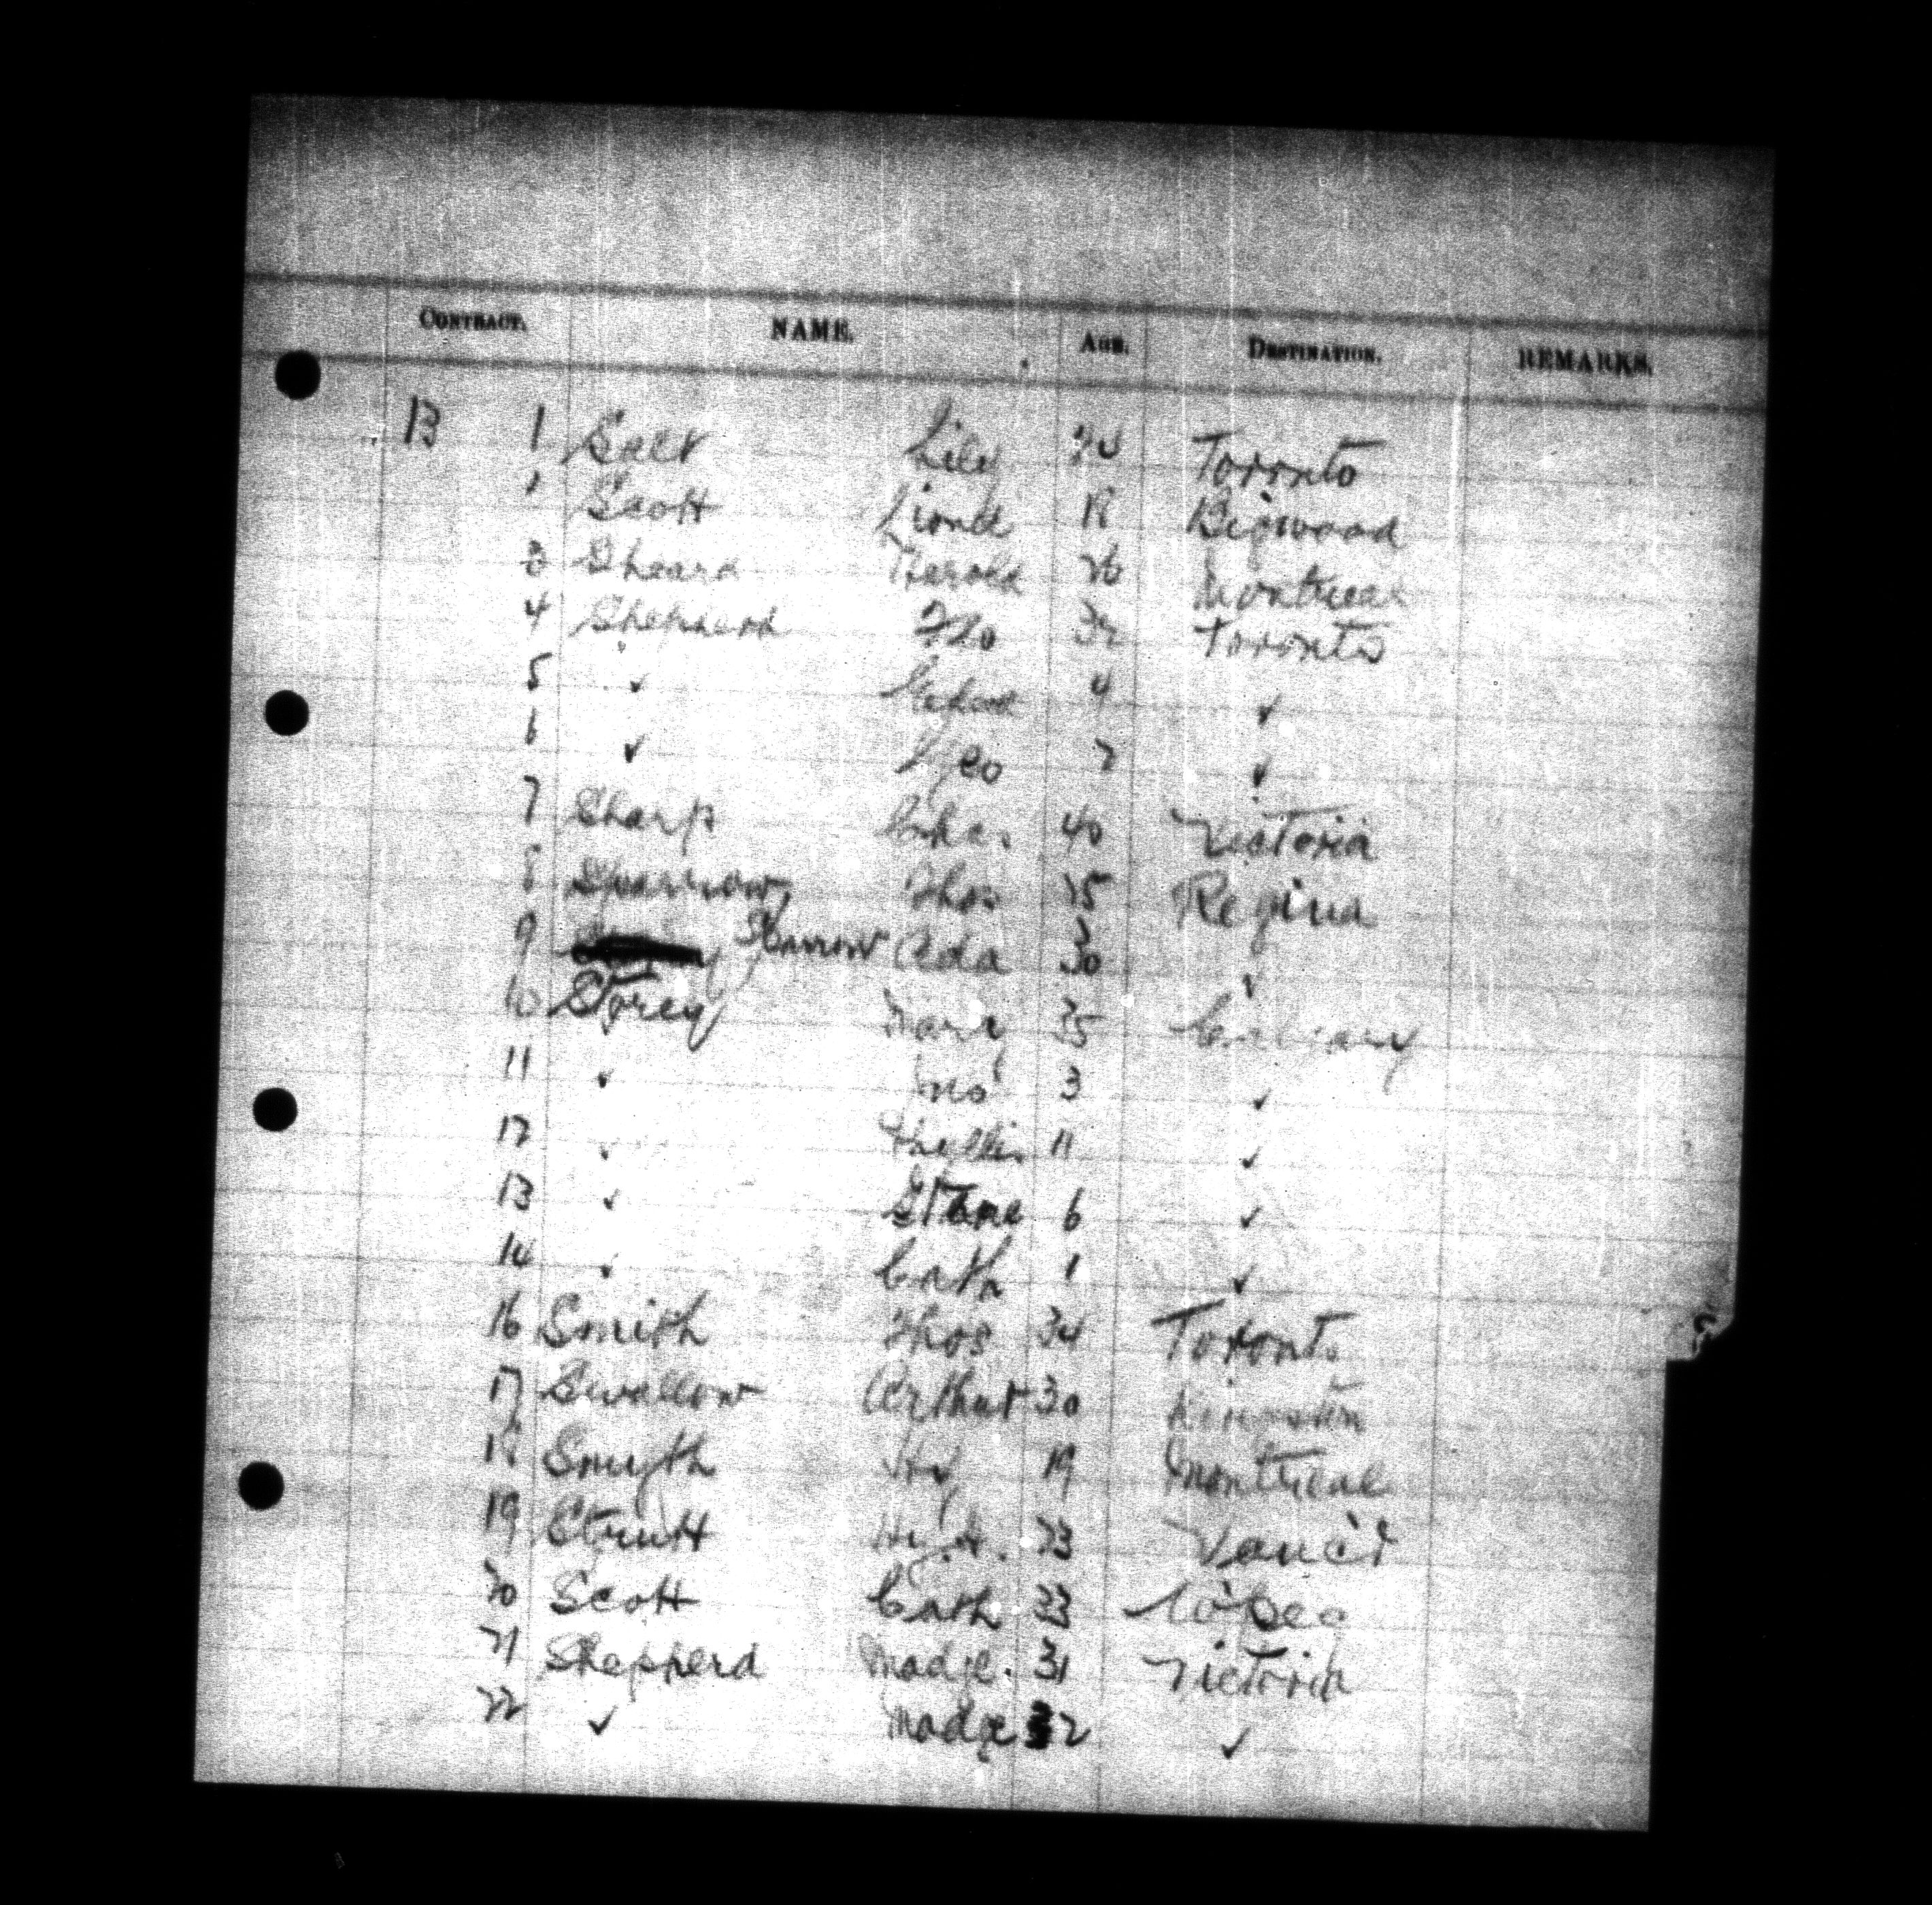 CONTRACT. NAME. AGE. DESTINATION. REMARKS.
13 1 Salt Lily 24 Toronto
2 Scott Lionel 18 Bigwood
3 Sheard Harold 26 Montreal
4 Shepherd Flo 32 Toronto
5 ✓ 4 ✓
6 ✓ Geo 2 ✓
7 Sharp Chas. 40 Victoria
8 Sparrow, Thos 25 Regina
9 Sparrow Ada 30 ✓
10 Storey Mary 35 Calgary
11 ✓ Jno 3 ✓
12 ✓ Phyllis 11 ✓
13 ✓ 6 ✓
14 ✓ Cath 1 ✓
16 Smith Thos 34 Toronto
17 Swallow Arthur 30 Kingston
18 Smyth Hy 19 Montreal
19 Strutt Hy. H. 23 Vanc'r
20 Scott Cath 33
21 Shepherd Madge. 31 Victoria
22 ✓ Madge 2 ✓